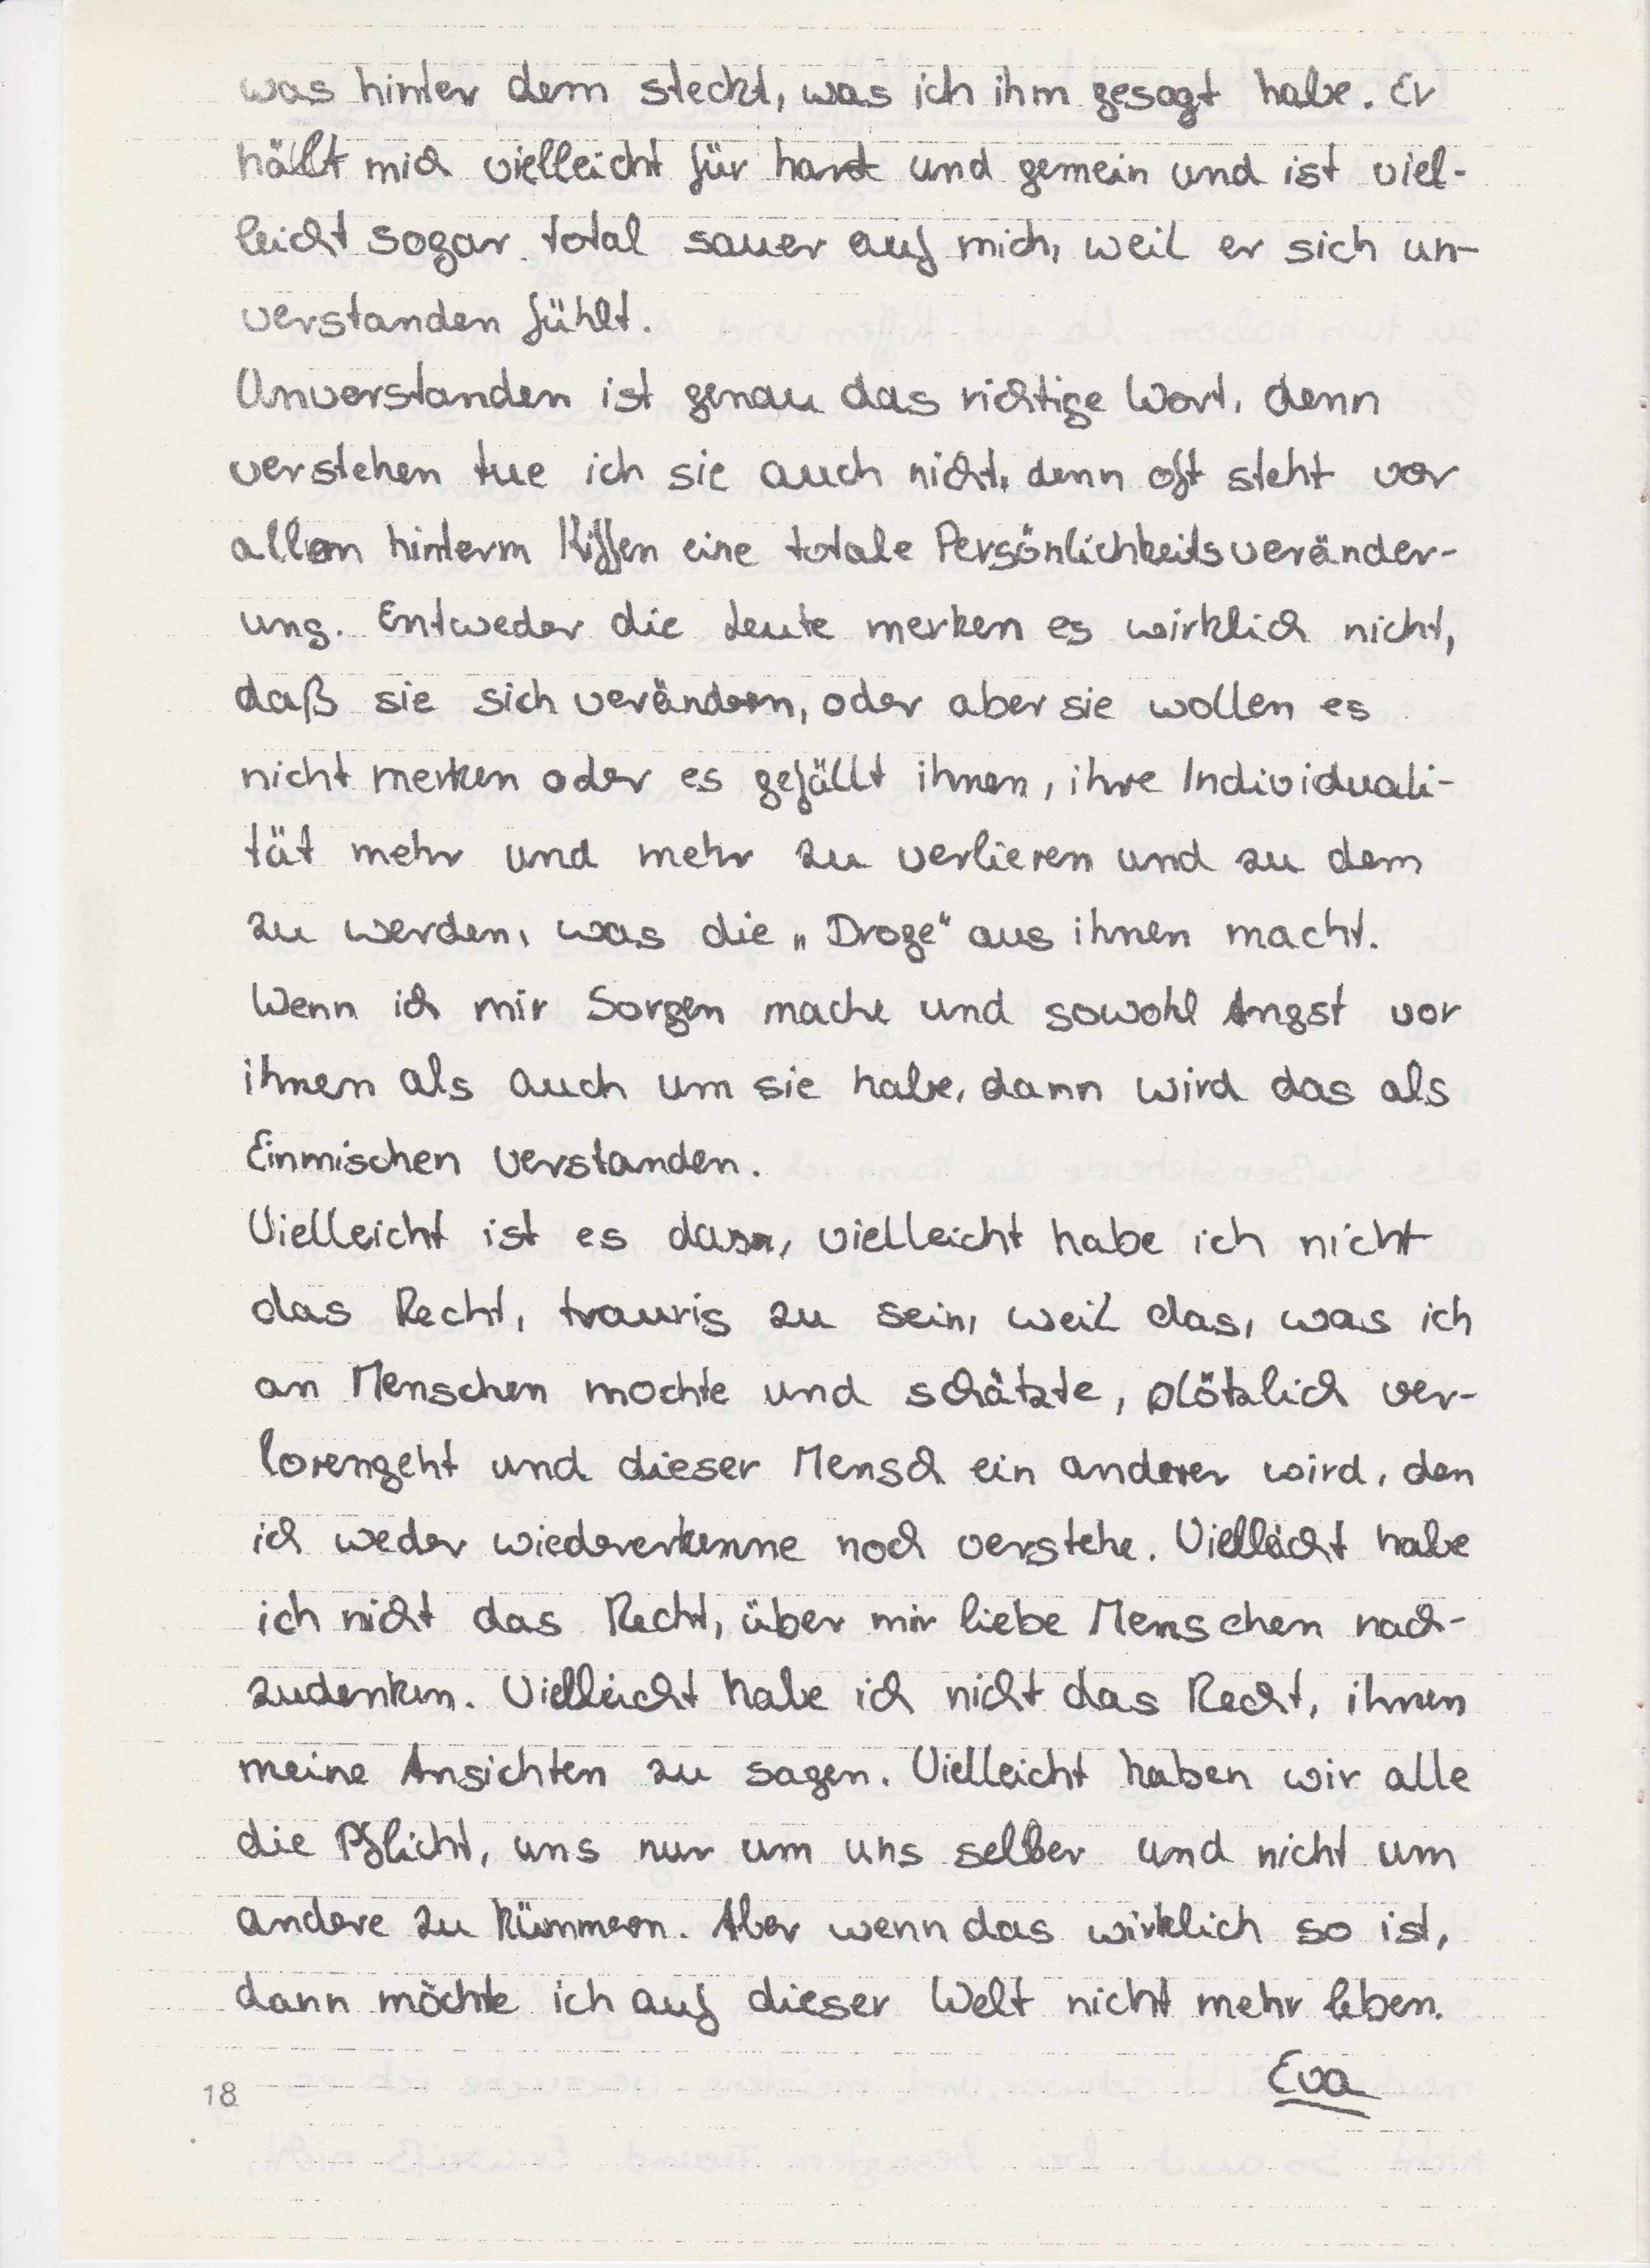 was hinter dem steckt, was ich ihm gesagt habe. Er
hällt mich vielleicht für hart und gemein und ist viel-
leicht sogar total sauer auf mich, weil er sich un-
verstanden fühlt.
Unverstanden ist genau das richtige Wort, denn
verstehen tue ich sie auch nicht, denn oft steht vor
allem hinterm Kiffen eine totale Persönlichkeitsveränder-
ung. Entweder die Leute merken es wirklich nicht,
daß sie sich verändern, oder aber sie wollen es
nicht merken oder es gefällt ihnen, ihre Individuali-
tät mehr und mehr zu verlieren und zu dem
zu werden, was die „Droge“ aus ihnen macht.
Wenn ich mir Sorgen mache und sowohl Angst vor
ihnen als auch um sie habe, dann wird das als
Einmischen verstanden.
Vielleicht ist es das, vielleicht habe ich nicht
das Recht, traurig zu sein, weil das, was ich
an Menschen mochte und schätzte, plötzlich ver-
lorengeht und dieser Mensch ein anderer wird, den
ich weder wiedererkenne noch verstehe. Vielleicht habe
ich nicht das Recht, über mir liebe Menschen nach-
zudenken. Vielleicht habe ich nicht das Recht, ihnen
meine Ansichten zu sagen. Vielleicht haben wir alle
die Pflicht, uns nur um uns selber und nicht um
andere zu kümmern. Aber wenn das wirklich so ist,
dann möchte ich auf dieser Welt nicht mehr leben.
Eva
18